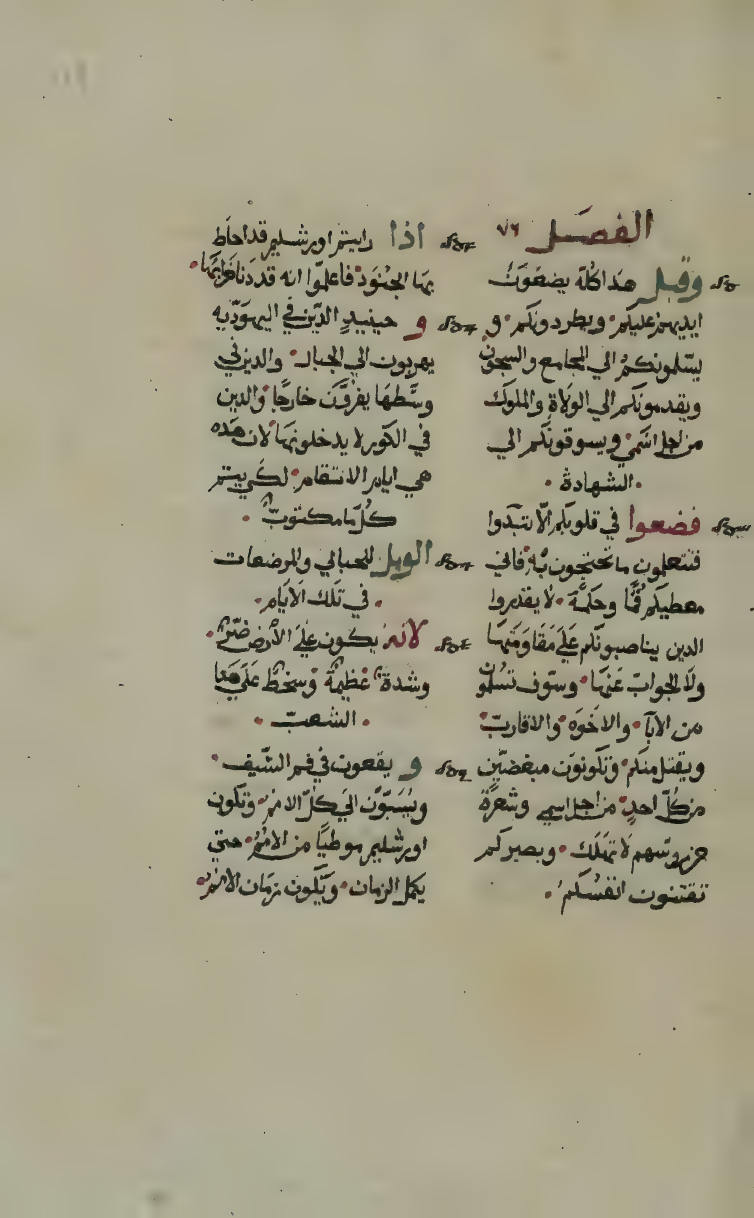 الفصل ٧٦
وقبل هذا كلّه يضعون
ايديهم عليكم ويطردونكم و
يسلمونكم الي المجامع والسجون
ويقدمونكم الي الولاة والملوك
من اجل اسمي ويسوقونكم الي
الشهادة
فضعوا في قلوبكم الّا تبتدوا
فتتعلمون ما تحتجون به فاني
معطيكم فمًا وحكمة لا يقدروا
الذين يناصبونكم علي مقاومتها
ولا الجواب عنها وسوف تسلمون
من الآبا والاخوه والاقارب
ويقتل منكم وتكونون مبغضين
من كلّ احد من اجل اسمي وشعرة
من روسهم لا تهلك وبصبركم
تقتنون انفسكم
اذا رايتم اورشليم قد احاط
بها الجنود فاعلموا انه قد دنا خرابها
و حينيد الدين في اليهوديه
يهربون الي الجبال والدين في
وسطها يفرون خارجًا والدين
في الكور لا يدخلونها لان هده
هي ايام الانتقام لكي يتم
كلّ ما مكتوب
الويل للحبالي والمرضعات
في تلك الايام
لانه يكون علي الارض ضر
وشدة عظيمة وسخط علي هدا
الشعب
و يقعون في فم السيف
ويسبون الي كلّ الامم وتكون
اورشليم موطيًا من الامم حتي
يكمل الزمان ويكون زمان الامم